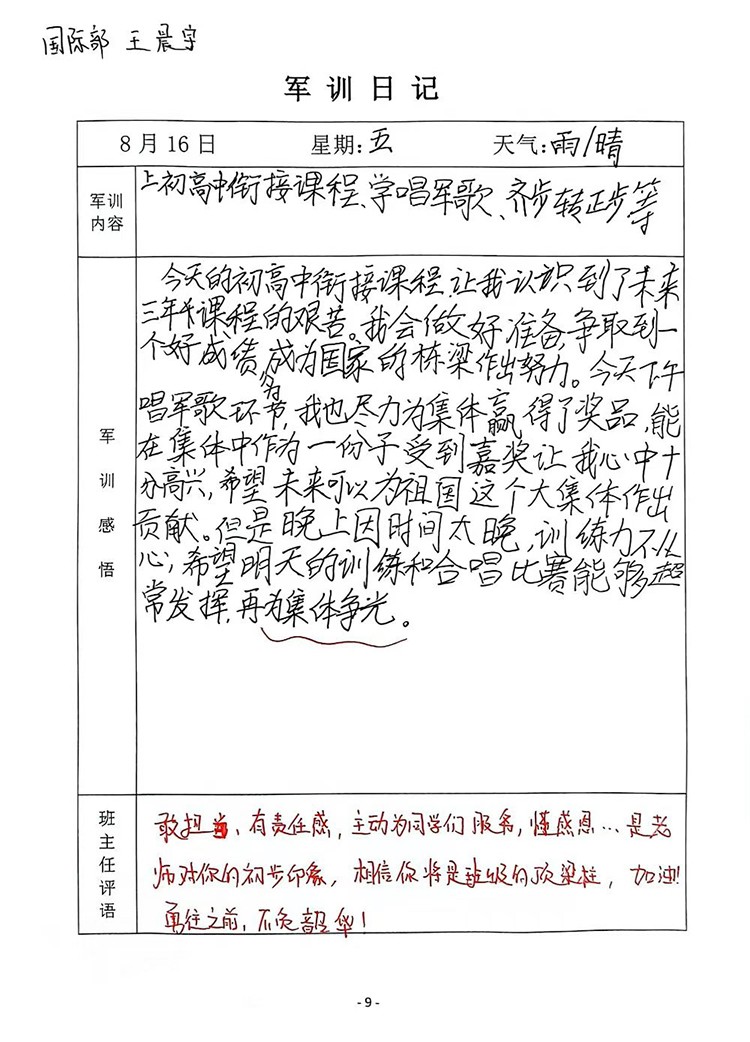 国际部 王晨宇
军训日记
8月16日 星期:五 天气:雨/晴
军训内容
上初高中衔接课程、学唱军歌、齐步转正步等
军训感悟
今天的初高中衔接课程,让我认识到了未来
三年课程的艰苦。我会做好准备,争取到一
个好成绩,为成为国家的栋梁作出努力。今天下午
唱军歌环节,我也尽力为集体赢得了奖品,能
在集体中作为一份子受到嘉奖让我心中十
分高兴,希望未来可以为祖国这个大集体作出
贡献。但是晚上因时间太晚,训练力不从
心;希望明天的训练和合唱比赛能够超
常发挥,再为集体争光。
班主任评语
敢担当、有责任感,主动为同学们服务,懂感恩…是老
师对你的初步印象,相信你将是班级的顶梁柱,加油!!
勇往之前,不负韶华!
-9-